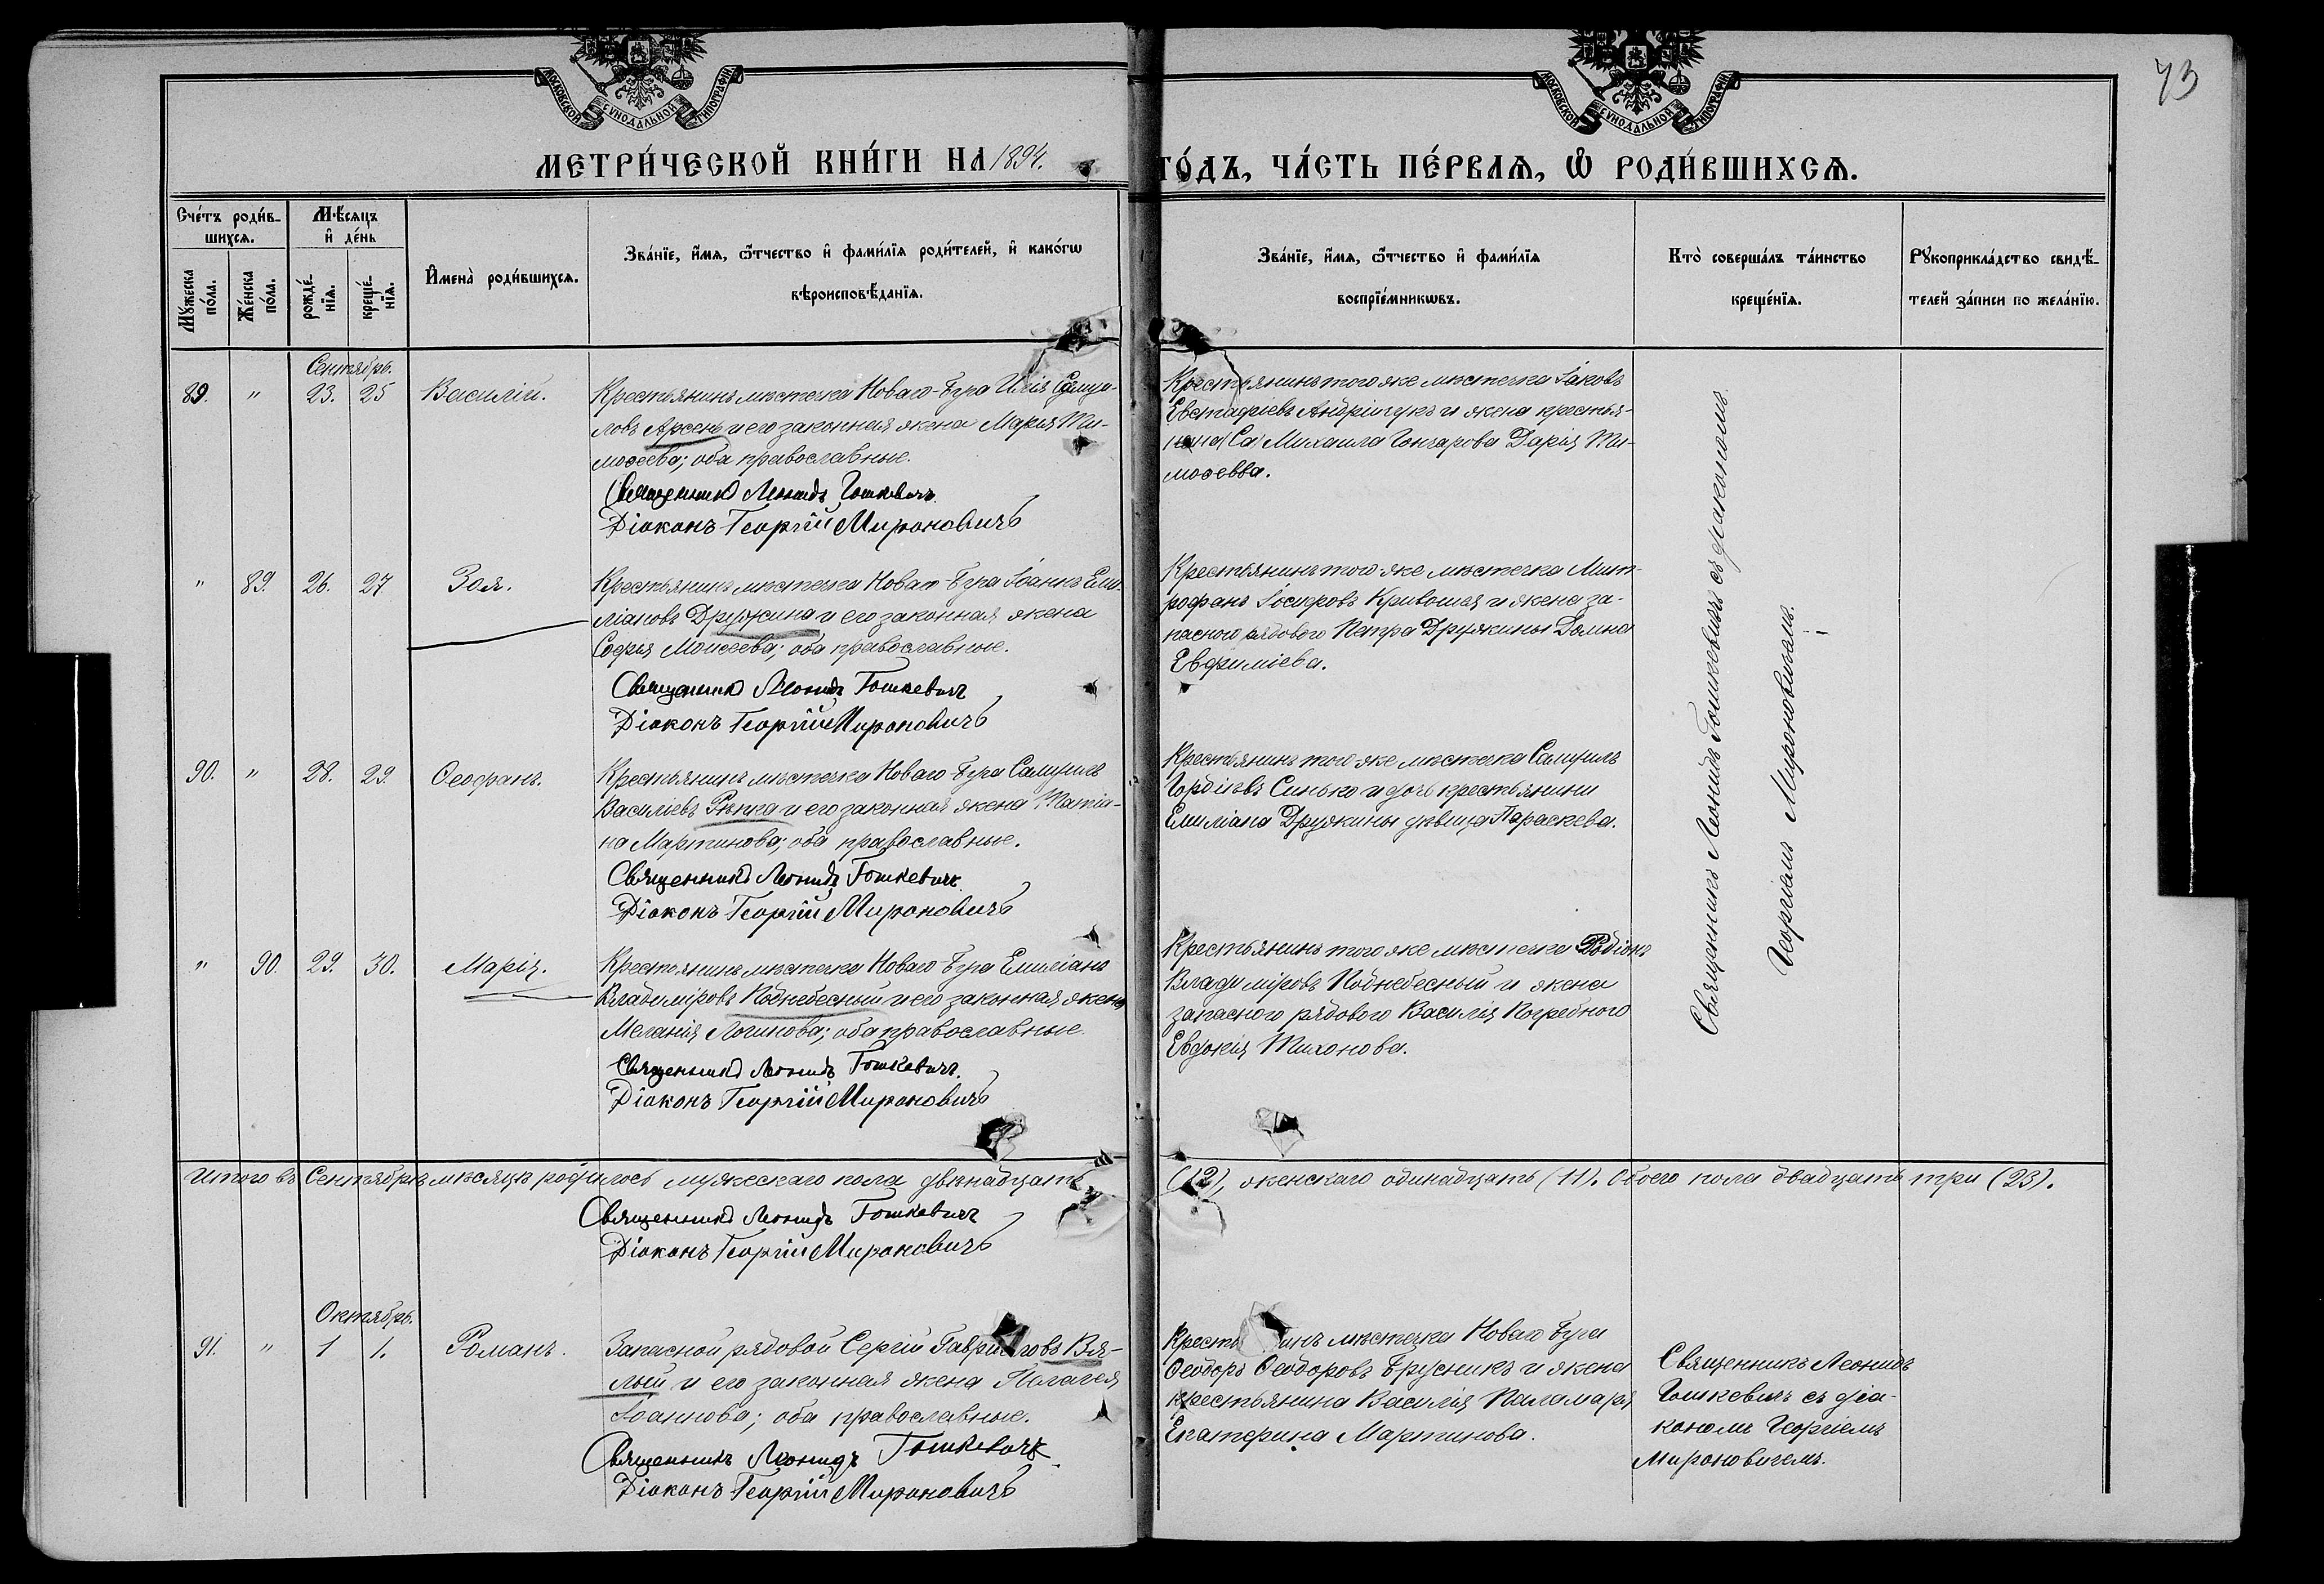 73
МОСКОВСКОЙ СѴНОДАЛЬНОЙ ТИПОГРАФІИ
МОСКОВСКОЙ СѴНОДАЛЬНОЙ ТИПОГРАФІИ
МЕТРИ́ЧЕСКОЙ КНИ́ГИ НА 1894. ГО́ДЪ, ЧА́СТЬ ПЕ́РВАѦ, Ѽ РОДИ́ВШИХСѦ.
Сче́тъ роди́в-
шихсѧ.
Мѣ́сѧцъ
и҆ де́нь
Мꙋ́жеска
по́ла.
Же́нска
по́ла.
рожде́-
нїѧ.
креще́-
нїѧ.
И҆мена̀ роди́вшихсѧ.
Зва́нїе, и҆́мѧ, ѻ҆́тчество и҆ фами́лїѧ роди́телей, и҆ како́гѡ
вѣроисповѣ́данїѧ.
Зва́нїе, и҆́мѧ, ѻ҆́тчество и҆ фами́лїѧ
воспрїе́мникѡвъ.
Кто̀ соверша́лъ та́инство
креще́нїѧ.
Рꙋкоприкла́дство свидѣ́-
телей за́писи по жела́нїю.
Сентябрь.
89. " 23. 25 Василій.
Крестьянинъ мѣстечка Новаго-Буга Илія Самуи-
ловъ Арсенъ и его законная жена Марія Ти-
моѳеева; оба православные.
Священникъ Леонидъ Гошкевичъ
Діаконъ Георгій Мироновичъ
Крестьянинъ того же мѣстечка Іаковъ
Евстафіевъ Андріищукъ и жена крестья-
нина Михаила Гончарова Дарія Ти-
моѳеева.
" 89. 26. 27 Зоя.
Крестьянинъ мѣстечка Новаго-Буга Іоаннъ Еми-
ліановъ Дружина и его законная жена
Софія Моисеева; оба православные.
Священникъ Леонидъ Гошкевичъ
Діаконъ Георгій Мироновичъ
Крестьянинъ того же мѣстечка Мит-
рофанъ Іосифовъ Кривошея и жена за-
паснаго рядового Петра Дружины Домна
Евфиміева.
90. " 28. 29. Ѳеофанъ.
Крестьянинъ мѣстечка Новаго-Буга Самуилъ
Васильевъ Рѣпка и его законная жена Татіа-
на Мартинова; оба православные.
Священникъ Леонидъ Гошкевичъ
Діаконъ Георгій Мироновичъ
Крестьянинъ того же мѣстечка Самуилъ
Гордіевъ Синько и дочь крестьянина
Емиліана Дружины дѣвица Параскева.
" 90. 29. 30. Марія.
Крестьянинъ мѣстечка Новаго-Буга Емиліанъ
Владиміровъ Поднебесный и его законная жена
Меланія Логинова; оба православные
Священникъ Леонидъ Гошкевичъ.
Діаконъ Георгій Мироновичъ
Крестьянинъ того же мѣстечка Родіонъ
Владиміровъ Поднебесный и жена
запасного рядового Василія Погребного
Евдокія Тихонова.
Священникъ Леонидъ Гошкевичъ съ діакономъ
Георгіемъ Мироновичемъ.
Итого въ Сентябрѣ мѣсяцѣ родилось мужескаго пола двѣнадцать (12), женскаго одинадцать (11). Обоего пола двадцать три (23).
Священникъ Леонидъ Гошкевичъ
Діаконъ Георгій Мироновичъ
Октябрь.
91. " 1 1. Романъ.
Запасной рядовой Сергій Гавриловъ Вя-
лый и его законная жена Пелагея
Іоаннова; оба православные.
Священникъ Леонидъ Гошкевичъ
Діаконъ Георгій Мироновичъ
Крестьянинъ мѣстечка Новаго Буга
Ѳеодоръ Ѳеодоровъ Брусникъ и жена
крестьянина Василія Паламаря
Екатерина Мартинова.
Священникъ Леонидъ
Гошкевичъ съ діа-
кономъ Георгіемъ
Мироновичемъ.